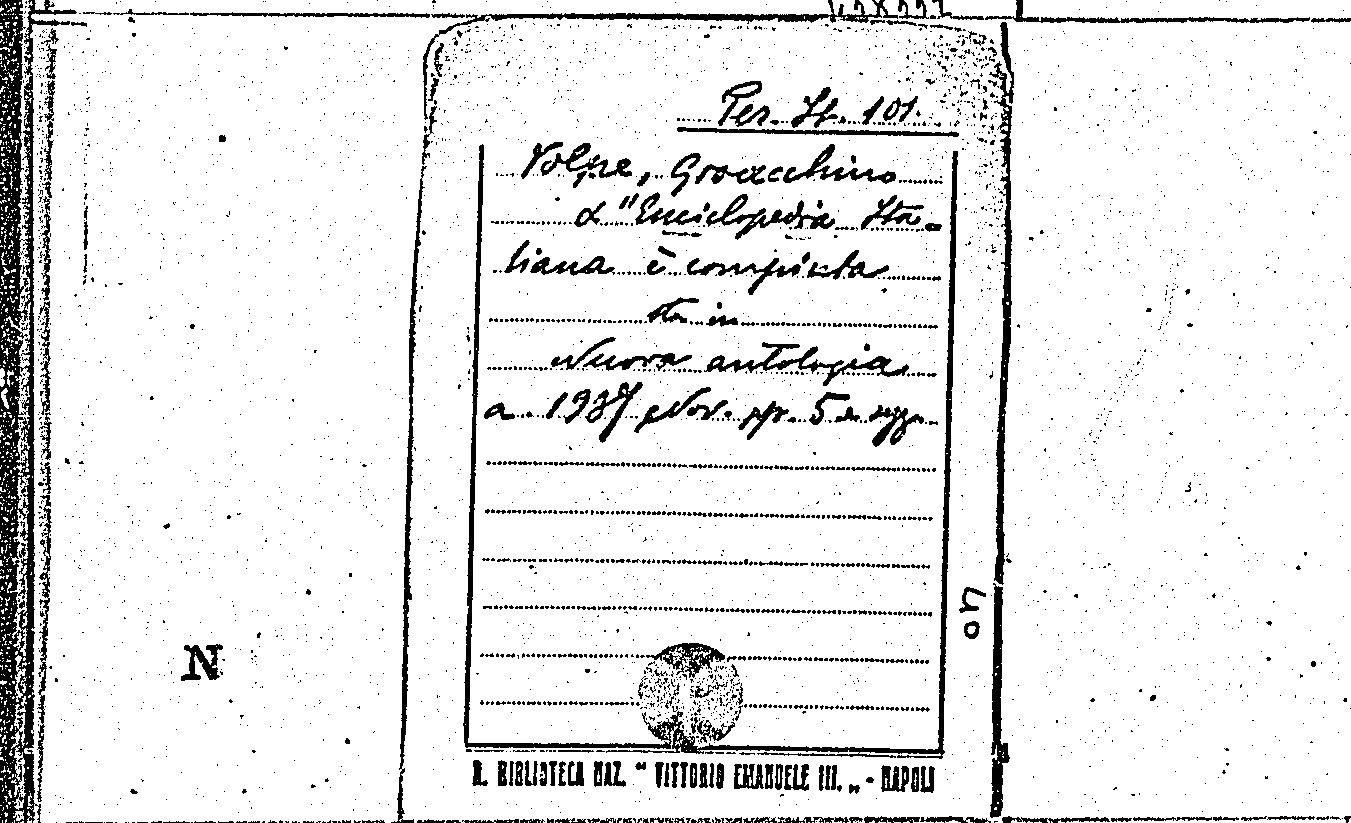 Per. It. 101.
Volpe, Gioacchino
L'"Enciclopedia Ita-
liana è compiuta
Sta in
Nuova antologia
a. 1937 Nov. pp. 5 e segg.
40
N
R. BIBLIOTECA NAZ. " VITTORIO EMANUELE III. „ - NAPOLI